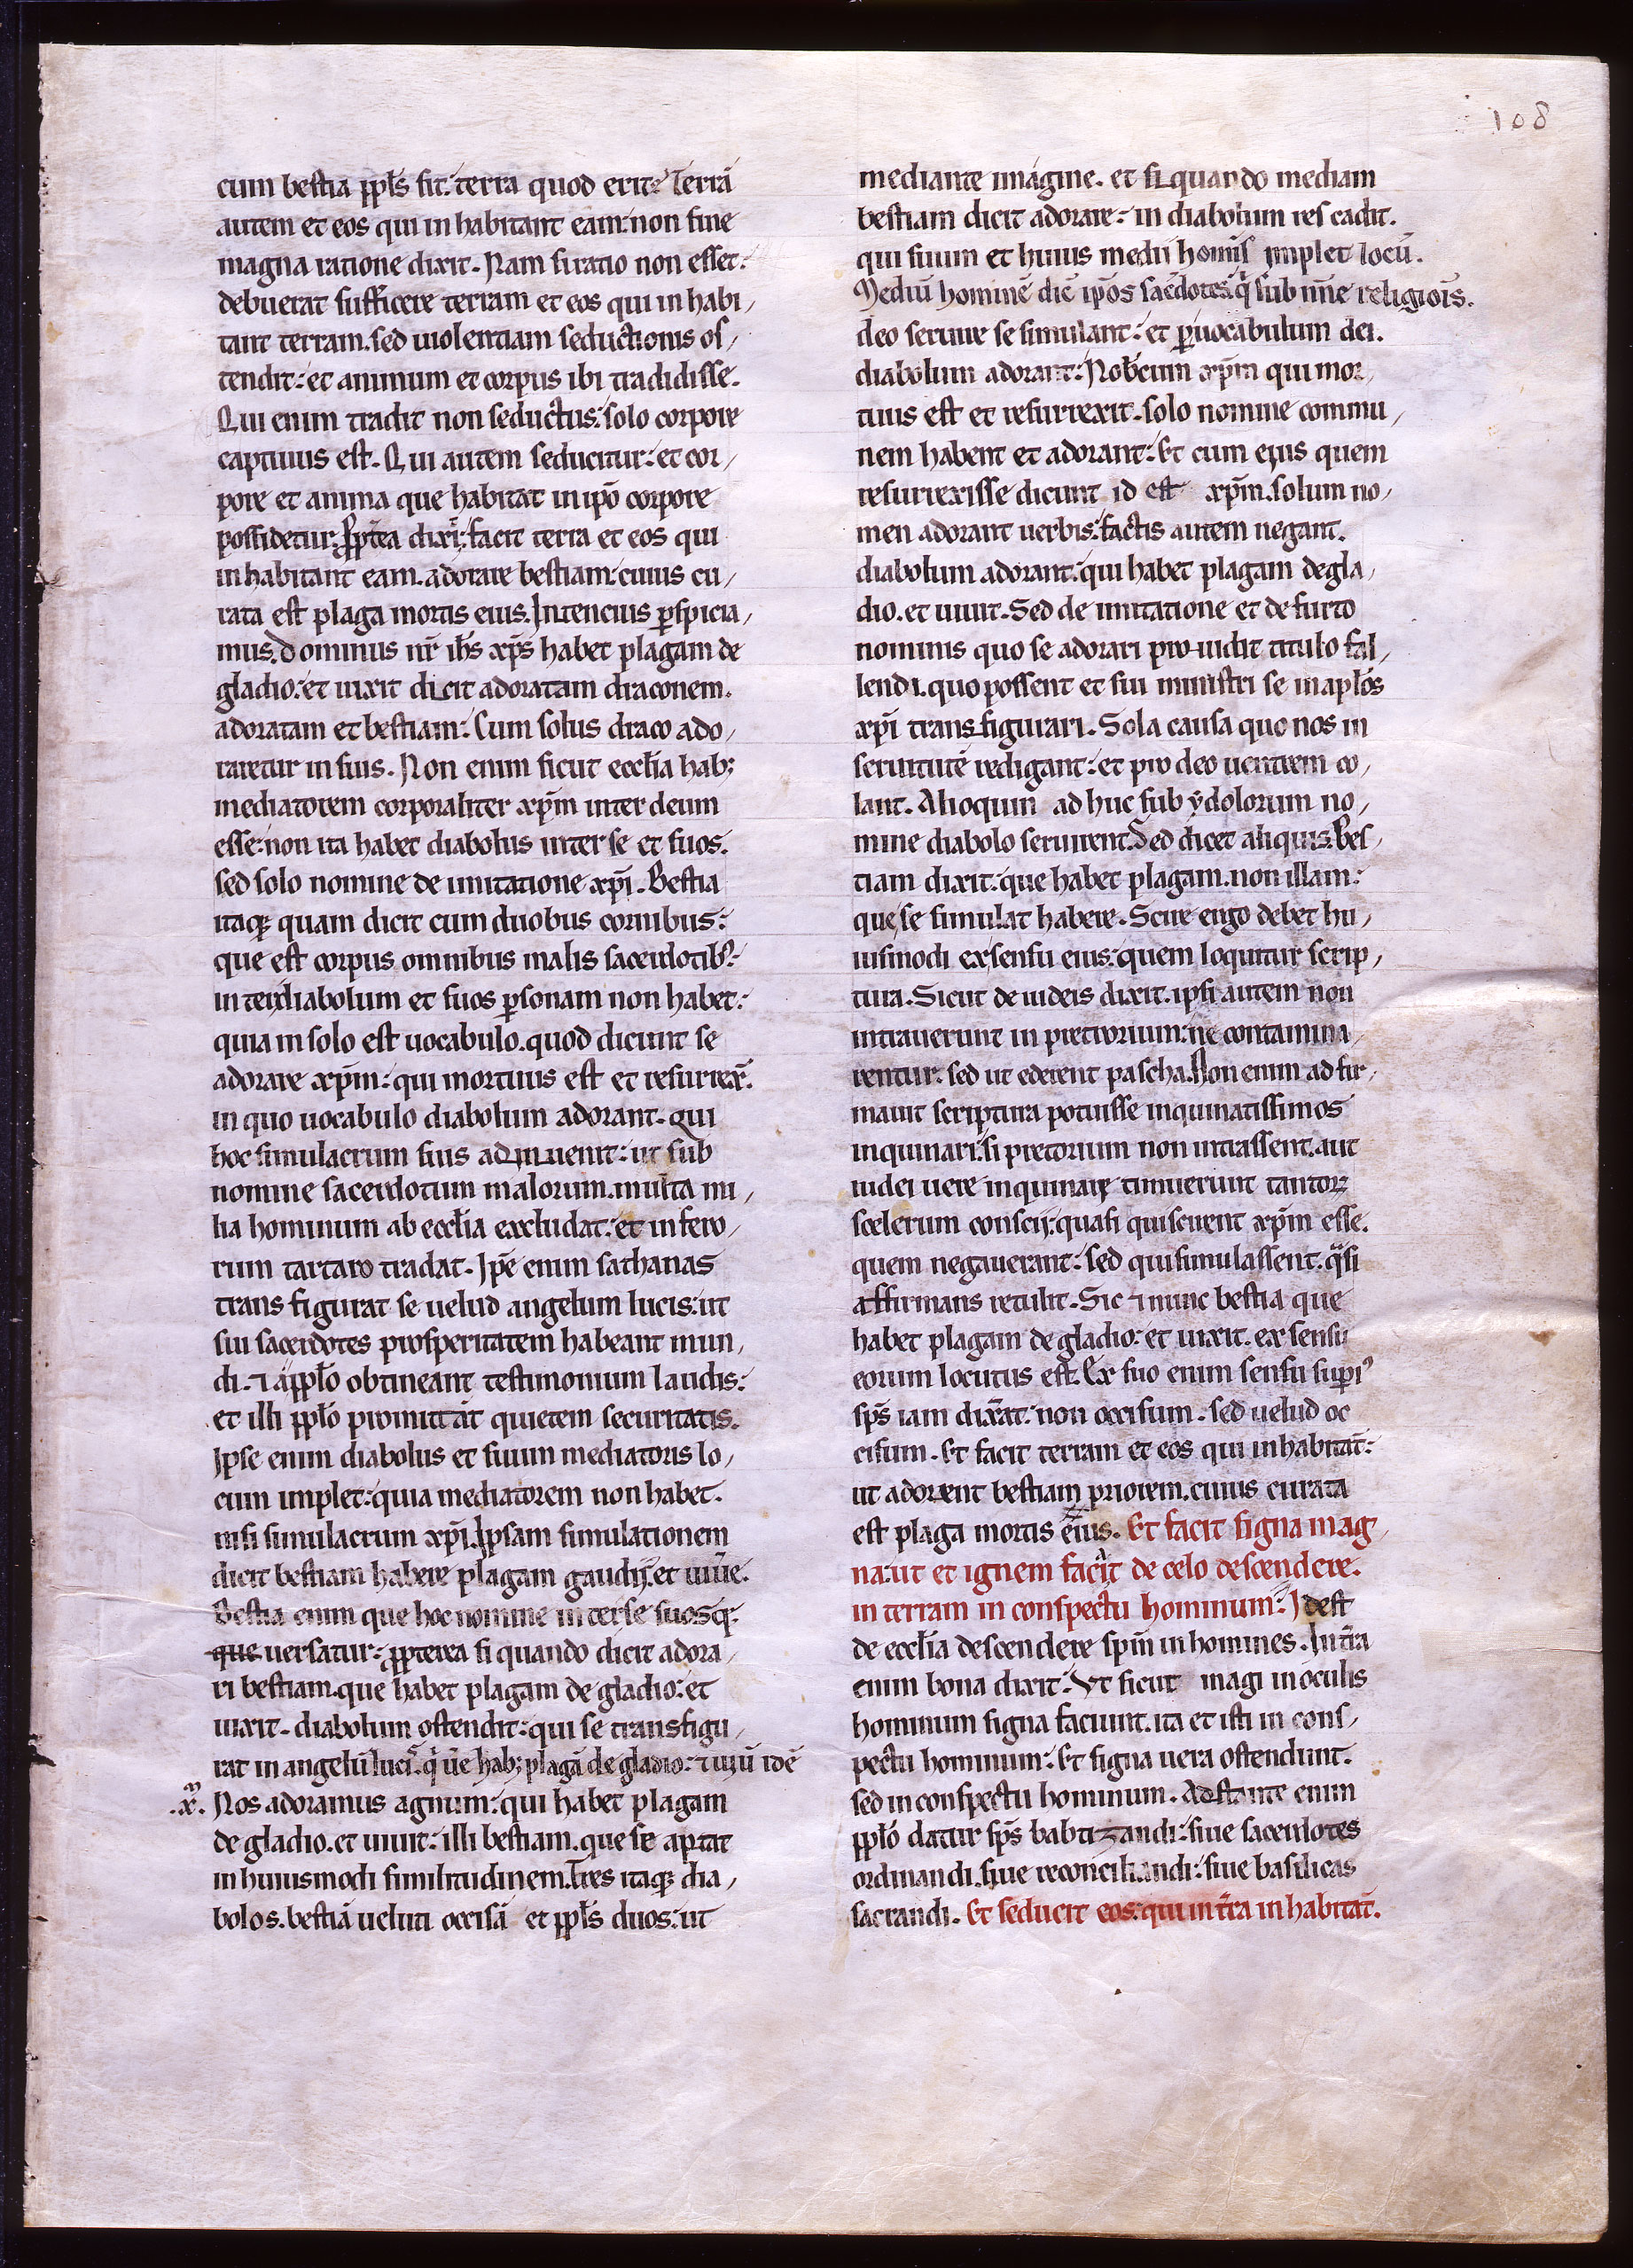 108
cum bestia ppl̄s sit terra quod erit? Terrā
autem et eos qui in habitant eam: non sine
magna ratione dixit. Nam si ratio non esset:
debuerat sufficere terram et eos qui in habi
tant terram. sed uiolentiam seductionis os
tendit: et animum et corpus ibi tradidisse.
Qui enim tradit non seductus: solo corpore
captiuus est. Qui autem seducitur: et cor
pore et anima que habitat in ip̄o corpore
possidetur. Propt̄ea dixi: facit terra et eos qui
in habitant eam. adorare bestiam: cuius cu
rata est plaga mortis eius. Intencius p̱spicia
mus. Dominus nr̄ ih̄s xp̄s habet plagam de
gladio: et uixit dicit adoratam draconem.
adoratam et bestiam: Cum solus draco ado
raretur in suis. Non enim sicut eccl̄ia hab;
mediatorem corporaliter xp̄m inter deum
esse: non ita habet diabolus inter se et suos.
sed solo nomine de imitatione xp̄i. Bestia
itaqꝫ quam dicit cum duobus cornibus:
que est corpus omnibus malis sacerdotibꝰ:
inter diabolum et suos p̱sonam non habet:
quia in solo est uocabulo. quod dicunt se
adorare xp̄m: qui mortuus est et resurrex̄.
in quo uocabulo diabolum adorant. Qui
hoc simulacrum suis ad inuenit: ut sub
nomine sacerdotum malorum. multa mi
lia hominum ab eccl̄ia excludat: et in fero
rum tartaro tradat. Ip̄e enim sathanas
trans figurat se uelud angelum lucis: ut
sui sacerdotes prosperitatem habeant mun
di. ⁊ a ppl̄o obtineant testimonium laudis:
et illi ppl̄o promittāt quietem securitatis.
Ipse enim diabolus et suum mediatoris lo
cum implet: quia mediatorem non habet.
nisi simulacrum xp̄i. Ipsam simulationem
dicit bestiam habere plagam gaudij: et uiue.
Bestia enim que hoc nomine inter se suosq̄.
que uersatur: ꝓpterea si quando dicit adora
ri bestiam. que habet plagam de gladio: et
uixit. diabolum ostendit: qui se transfigu
rat in angelū luci. q̄ ue hab; plagā de gladio: ⁊ uiuū idē
.x̄. Nos adoramus agnum: qui habet plagam
de gladio. et uiuit: illi bestiam. que se aptat
in huiusmodi similitudinem. Tres itaqꝫ dia
bolos. bestiā ueluti occisā et ppl̄s duos: ut
mediante imagine. et si quando mediam
bestiam dicit adorare: in diabolum res cadit.
qui suum et huius medii homīs implet locū.
Mediū hominē dic̄ ip̄os sac̄dotes q̄ sub nn̄e religiōis.
deo seruire se simulant: et p̱ uocabulum dei.
diabolum adorant: Nobcum xp̄m qui mor
tuus est et resurrexit. solo nomine commu
nem habent et adorant: Et cum eius quem
resurrexisse dicunt id est xp̄m. solum no
men adorant uerbis: factis autem negant.
diabolum adorant. qui habet plagam de gla
dio. et uiuit. Sed de imitatione et de furto
nominis quo se adorari pro uidit titulo fal
lendi. quo possent et sui ministri se in apl̄os
xp̄i trans figurari. Sola causa quo nos in
seruitutē redigant: et pro deo uentrem co
lant. Alioquin ad huc sub ydolorum no
mine diabolo seruirent. Sed dicet aliquis. Bes
tiam dixit: que habet plagam. non illam:
que se simulat habere. Scire ergo debet hu
iusmodi ex sensu eius: quem loquitur scrip
tura. Sicut de iudeis dixit. ipsi autem non
intrauerunt in pretorium: ne contamina
rentur: sed ut ederent pascha. Non enim ad fir
mauit scriptura potuisse inquinatissimos
inquinari. si pretorium non intrassent. aut
iudei uere inquinari timuerunt tantoꝝ
scelerum conscij: quasi qui scirent xp̄m esse.
quem negauerant: sed qui simulassent. q̄si
affirmans retulit. Sic ⁊ nunc bestia que
habet plagam de gladio: et uixit. ex sensu
eorum locutus est. Ex suo enim sensu supiꝰ
sp̄s iam dix̄at. non occisum. sed uelud oc
cisum. Et facit terram et eos qui in habitāt:
ut adorent bestiam priorem. cuius curata
est plaga mortis eius. Et facit signa mag
na: ut et ignem faciat de celo descendere.
in terram in conspectu hominum: Id est
de eccl̄ia descendere sp̄m in homines. In t̄ra
enim bona dixit. Vt sicut magi in oculis
hominum signa faciunt. ita et isti in cons
pectu hominum: Et signa uera ostendunt.
sed in conspectu hominum. Adstante enim
ppl̄o datur sp̄s babtizandi: siue sacerdotes
ordinandi. siue reconciliandi: siue basilicas
sacrandi. Et seducit eos: qui in t̄ra in habitāt.